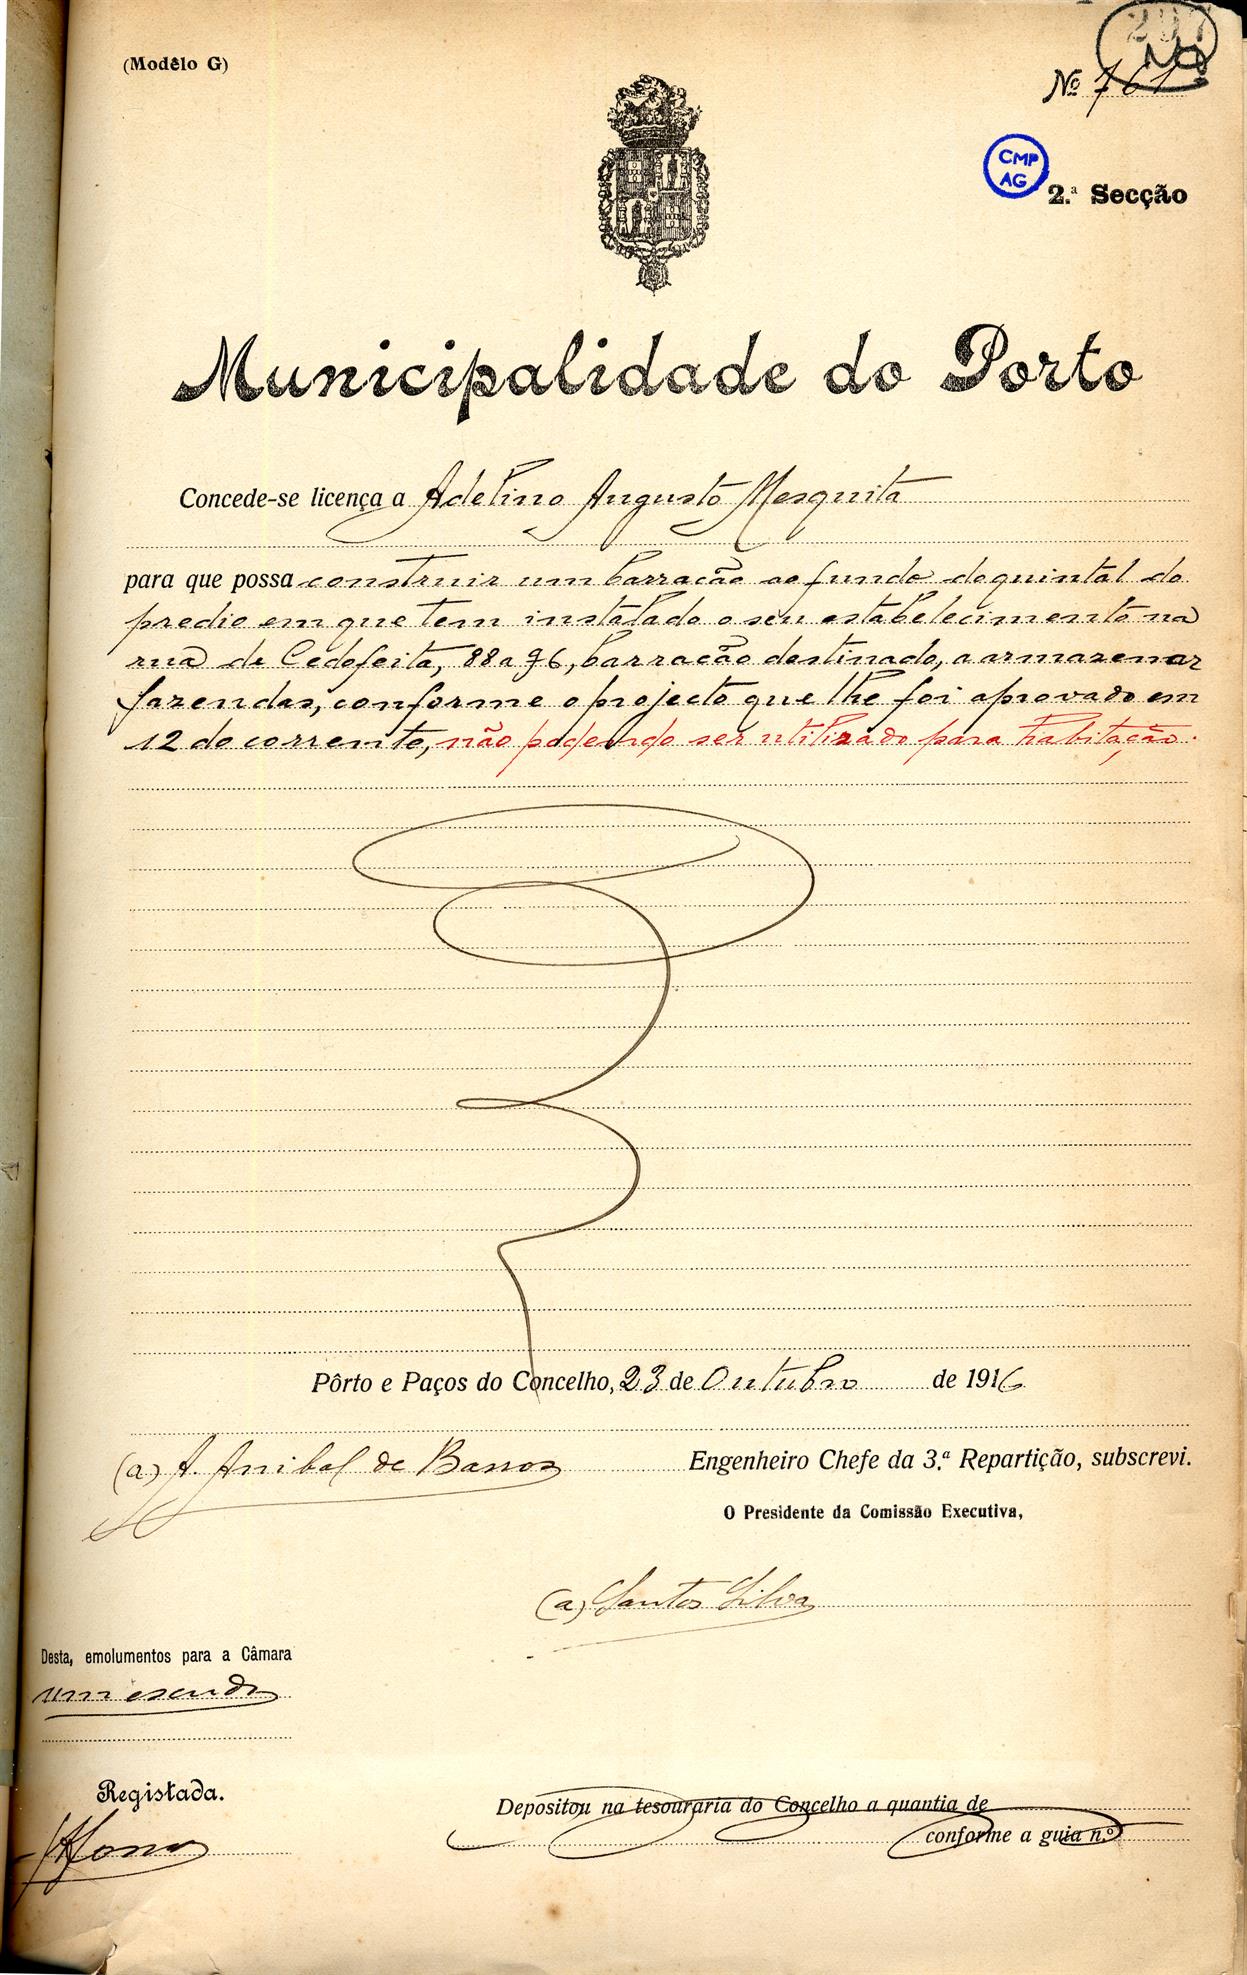 (Modêlo G)
Nº 761
CMP
AG
2.ª Secção
Municipalidade do Porto
Concede-se licença a Adelino Augusto Mesquita
para que possa construir um barracão ao fundo do quintal do
predio em que tem instalado o seu estabelecimento na
rua de Cedofeita, 88 a 96, barracão destinado, a armazenar
fazendas, conforme o projecto que lhe foi aprovado em
12 do corrente, não podendo ser utilizado para habitação.
Pôrto e Paços do Concelho, 23 de Outubro de 1916
(a) A. Anibal de Barros Engenheiro Chefe da 3.ª Repartição, subscrevi.
O Presidente da Comissão Executiva,
(a) Santos Silva
Desta, emolumentos para a Câmara
um escudo
Registada.
Depositou na tesouraria do Concelho a quantia de
conforme a guia n.º